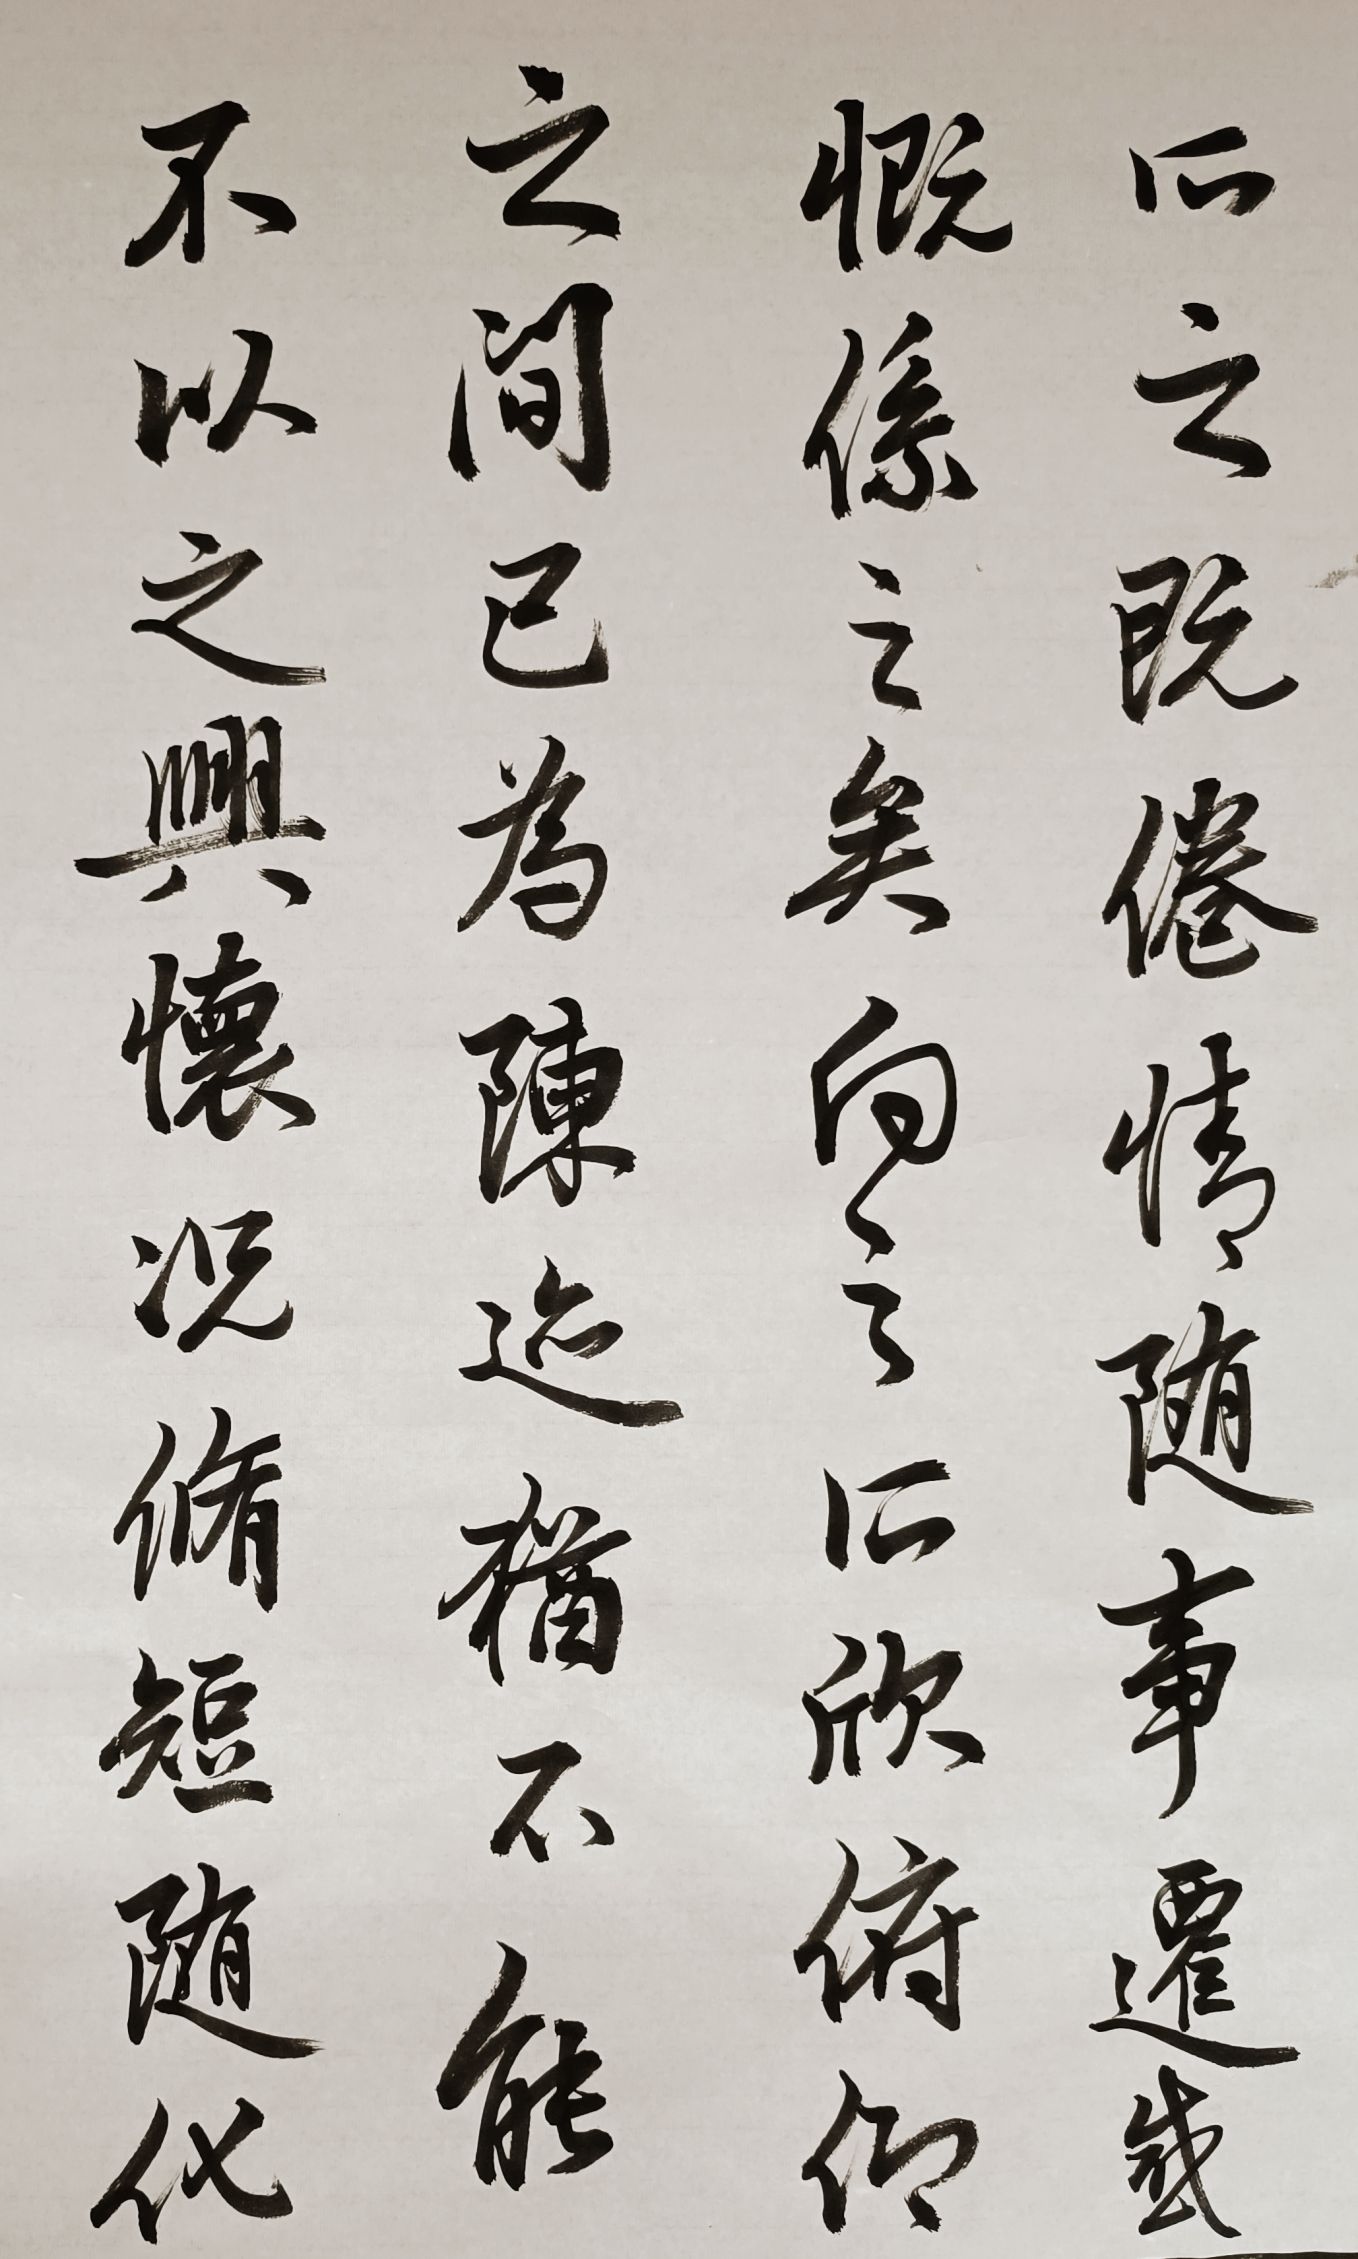 所之既倦情随事遷感
慨係之矣向之所欣俯仰
之間已為陳迹猶不能
不以之興懷况脩短随化